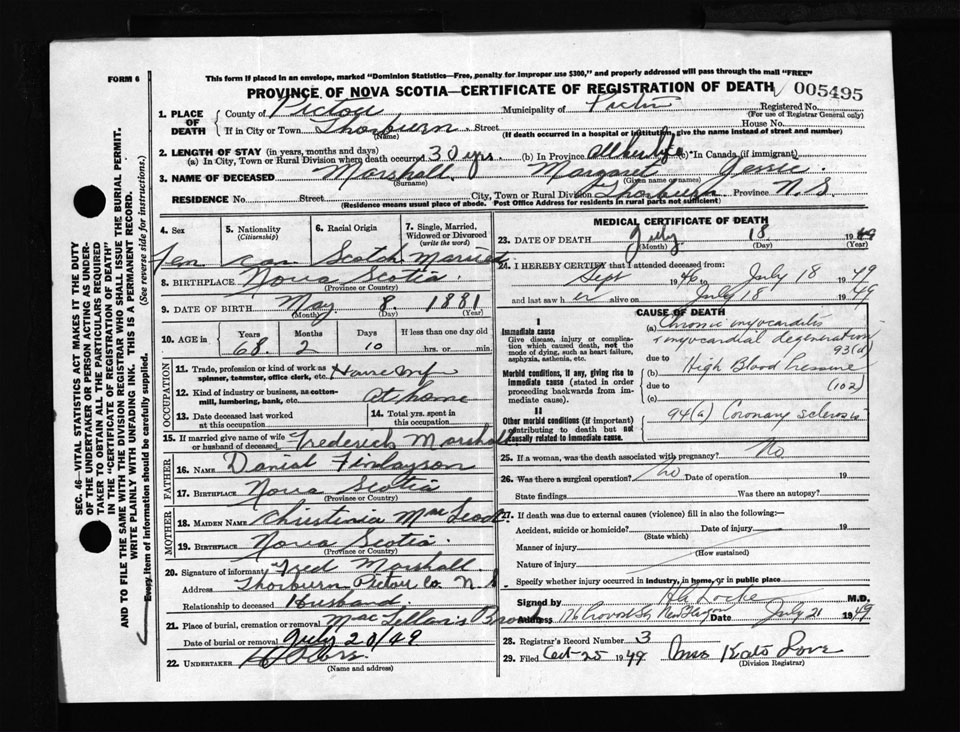 FORM 6
This form if placed in an envelope, marked "Dominion Statistics—Free, penalty for improper use $300," and properly addressed will pass through the mail "FREE"
PROVINCE OF NOVA SCOTIA—CERTIFICATE OF REGISTRATION OF DEATH
005495
1. PLACE OF DEATH County of Pictou Municipality of Pictou Registered No.
(For use of Registrar General only)
If in City or Town Thorburn Street House No.
(Name) (If death occurred in a hospital or institution, give the name instead of street and number)
2. LENGTH OF STAY (in years, months and days)
(a) In City, Town or Rural Division where death occurred 30 yrs. (b) In Province All her life (c) In Canada (if immigrant)
3. NAME OF DECEASED Marshall Margaret Jessie
(Surname) (Given name or names)
RESIDENCE No. Street City, Town or Rural Division Thorburn Province N.S.
(Residence means usual place of abode. Post Office Address for residents in rural parts not sufficient)
4. Sex Fem
5. Nationality (Citizenship) can
6. Racial Origin Scotch
7. Single, Married, Widowed or Divorced (write the word) Married
8. BIRTHPLACE Nova Scotia
(Province or County)
9. DATE OF BIRTH May 8 1881
(Month) (Day) (Year)
10. AGE in Years Months Days If less than one day old
68 2 10 hrs. or min.
OCCUPATION
11. Trade, profession or kind of work as spinner, teamster, office clerk, etc.
12. Kind of industry or business, as cotton-mill, lumbering, bank, etc. At home
13. Date deceased last worked at this occupation
14. Total yrs. spent in this occupation
15. If married give name of wife or husband of deceased Frederick Marshall
FATHER
16. NAME Danial Finlayson
17. BIRTHPLACE Nova Scotia
(Province or Country)
MOTHER
18. MAIDEN NAME Christinia MacLeod
19. BIRTHPLACE Nova Scotia
(Province or Country)
20. Signature of informant Fred Marshall
Address Thorburn Pictou Co. N.S.
Relationship to deceased Husband
21. Place of burial, cremation or removal MacLellan's Brook
Date of burial or removal July 20/49
22. UNDERTAKER
(Name and address)
MEDICAL CERTIFICATE OF DEATH
23. DATE OF DEATH July 18 1949
(Month) (Day) (Year)
24. I HEREBY CERTIFY that I attended deceased from:
Sept 1946 to July 18 1949
and last saw her alive on July 18 1949
CAUSE OF DEATH
I
Immediate cause
Give disease, injury or complication which caused death, not the mode of dying, such as heart failure, asphyxia, asthenia, etc.
(a) Chronic myocarditis
& myocardial degeneration
93(d)
due to
Morbid conditions, if any, giving rise to immediate cause (stated in order proceeding backwards from immediate cause).
(b) High Blood Pressure
due to (102)
(c)
II
Other morbid conditions (if important) contributing to death but not causally related to immediate cause.
94(a) Coronary sclerosis
25. If a woman, was the death associated with pregnancy? No
26. Was there a surgical operation? No Date of operation 19
State findings Was there an autopsy?
27. If death was due to external causes (violence) fill in also the following:—
Accident, suicide or homicide? Date of injury 19
(State which)
Manner of injury
(How sustained)
Nature of injury
Specify whether injury occurred in industry, in home, or in public place
Signed by M.D.
Address Date July 21 1949
28. Registrar's Record Number 3
29. Filed Oct 25 1949 Miss Kate
(Division Registrar)
SEC. 46—VITAL STATISTICS ACT MAKES IT THE DUTY
OF THE UNDERTAKER OR PERSON ACTING AS UNDER-
TAKER TO OBTAIN ALL THE PARTICULARS REQUIRED
IN THE "CERTIFICATE OF REGISTRATION OF DEATH"
AND TO FILE THE SAME WITH THE DIVISION REGISTRAR WHO SHALL ISSUE THE BURIAL PERMIT.
WRITE PLAINLY WITH UNFADING INK. THIS IS A PERMANENT RECORD.
Every item of information should be carefully supplied. (See reverse side for instructions.)